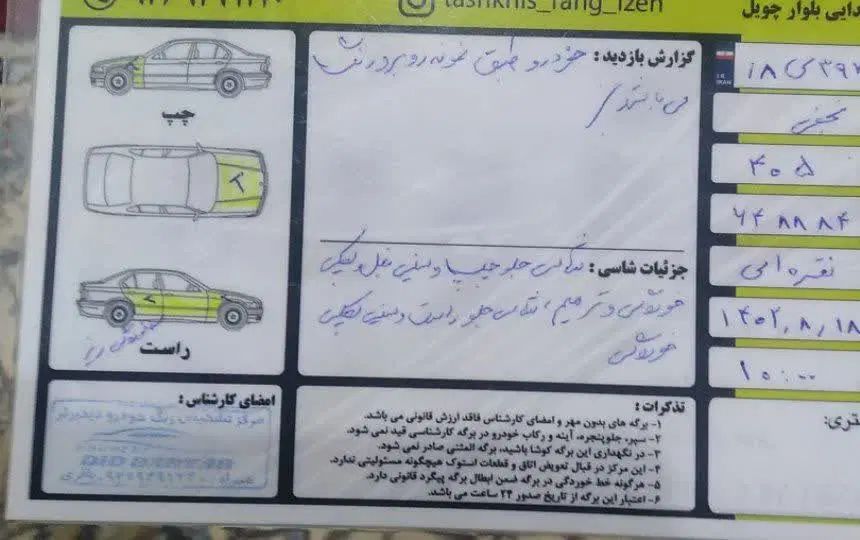 tashkhis_rang_izeh
دایی بلوار چویل
گزارش بازدید : خودرو طبق نمونه روبرو رنگ
می باشد
چپ
۲
۲
راست
نجفی
۴۰۵
۶۴۸۸۸۴
نقره ای
۱۴۰۲,۸,۱۸
۱۰:۰۰
جزئیات شاسی : شاسی جلو چپ
خوردگی و ترمیم ، شاسی جلو راست
خوردگی
امضای کارشناس :
مرکز تشخیص رنگ خودرو دیدبرتر
DID BARTAR
تذکرات :
۱- برگه های بدون مهر و امضای کارشناس فاقد ارزش قانونی می باشد.
۲- سپر، جلوپنجره، آینه و رکاب خودرو در برگه کارشناسی قید نمی شود.
۳- در نگهداری این برگه کوشا باشید، برگه المثنی صادر نمی شود.
۴- این مرکز در قبال تعویض اتاق و قطعات استوک هیچگونه مسئولیتی ندارد.
۵- هرگونه خط خوردگی در برگه ضمن ابطال برگه پیگرد قانونی دارد.
۶- اعتبار این برگه از تاریخ صدور ۲۴ ساعت می باشد.
تری: